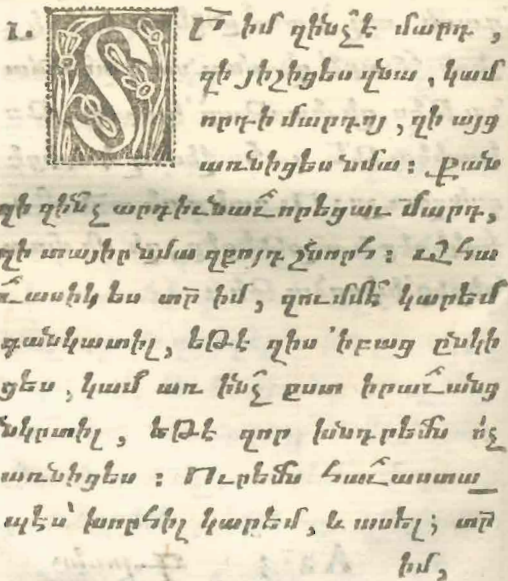 1. ՏՐ իմ զի՞նչ է մարդ,
զի յիշիցես զնա, կամ
որդի մարդոյ, զի այց
առնիցես նմա։ Քան
զի զի՞նչ արդիւնաւորեցաւ մարդ,
զի տայիր նմա զքոյդ շնորհ։ Ահա
ւասիկ ես տր իմ, զումմէ՞ կարեմ
գանկատիլ, եթէ զիս ՚ի բաց ընկի
ցես, կամ առ ի՞նչ ըստ իրաւանց
նկրտիլ, եթէ զոր խնդրեմս ոչ
առնիցես։ Ուրեմն հաւաստա_
պէս խորհիլ կարեմ, և ասել; տր
իմ,